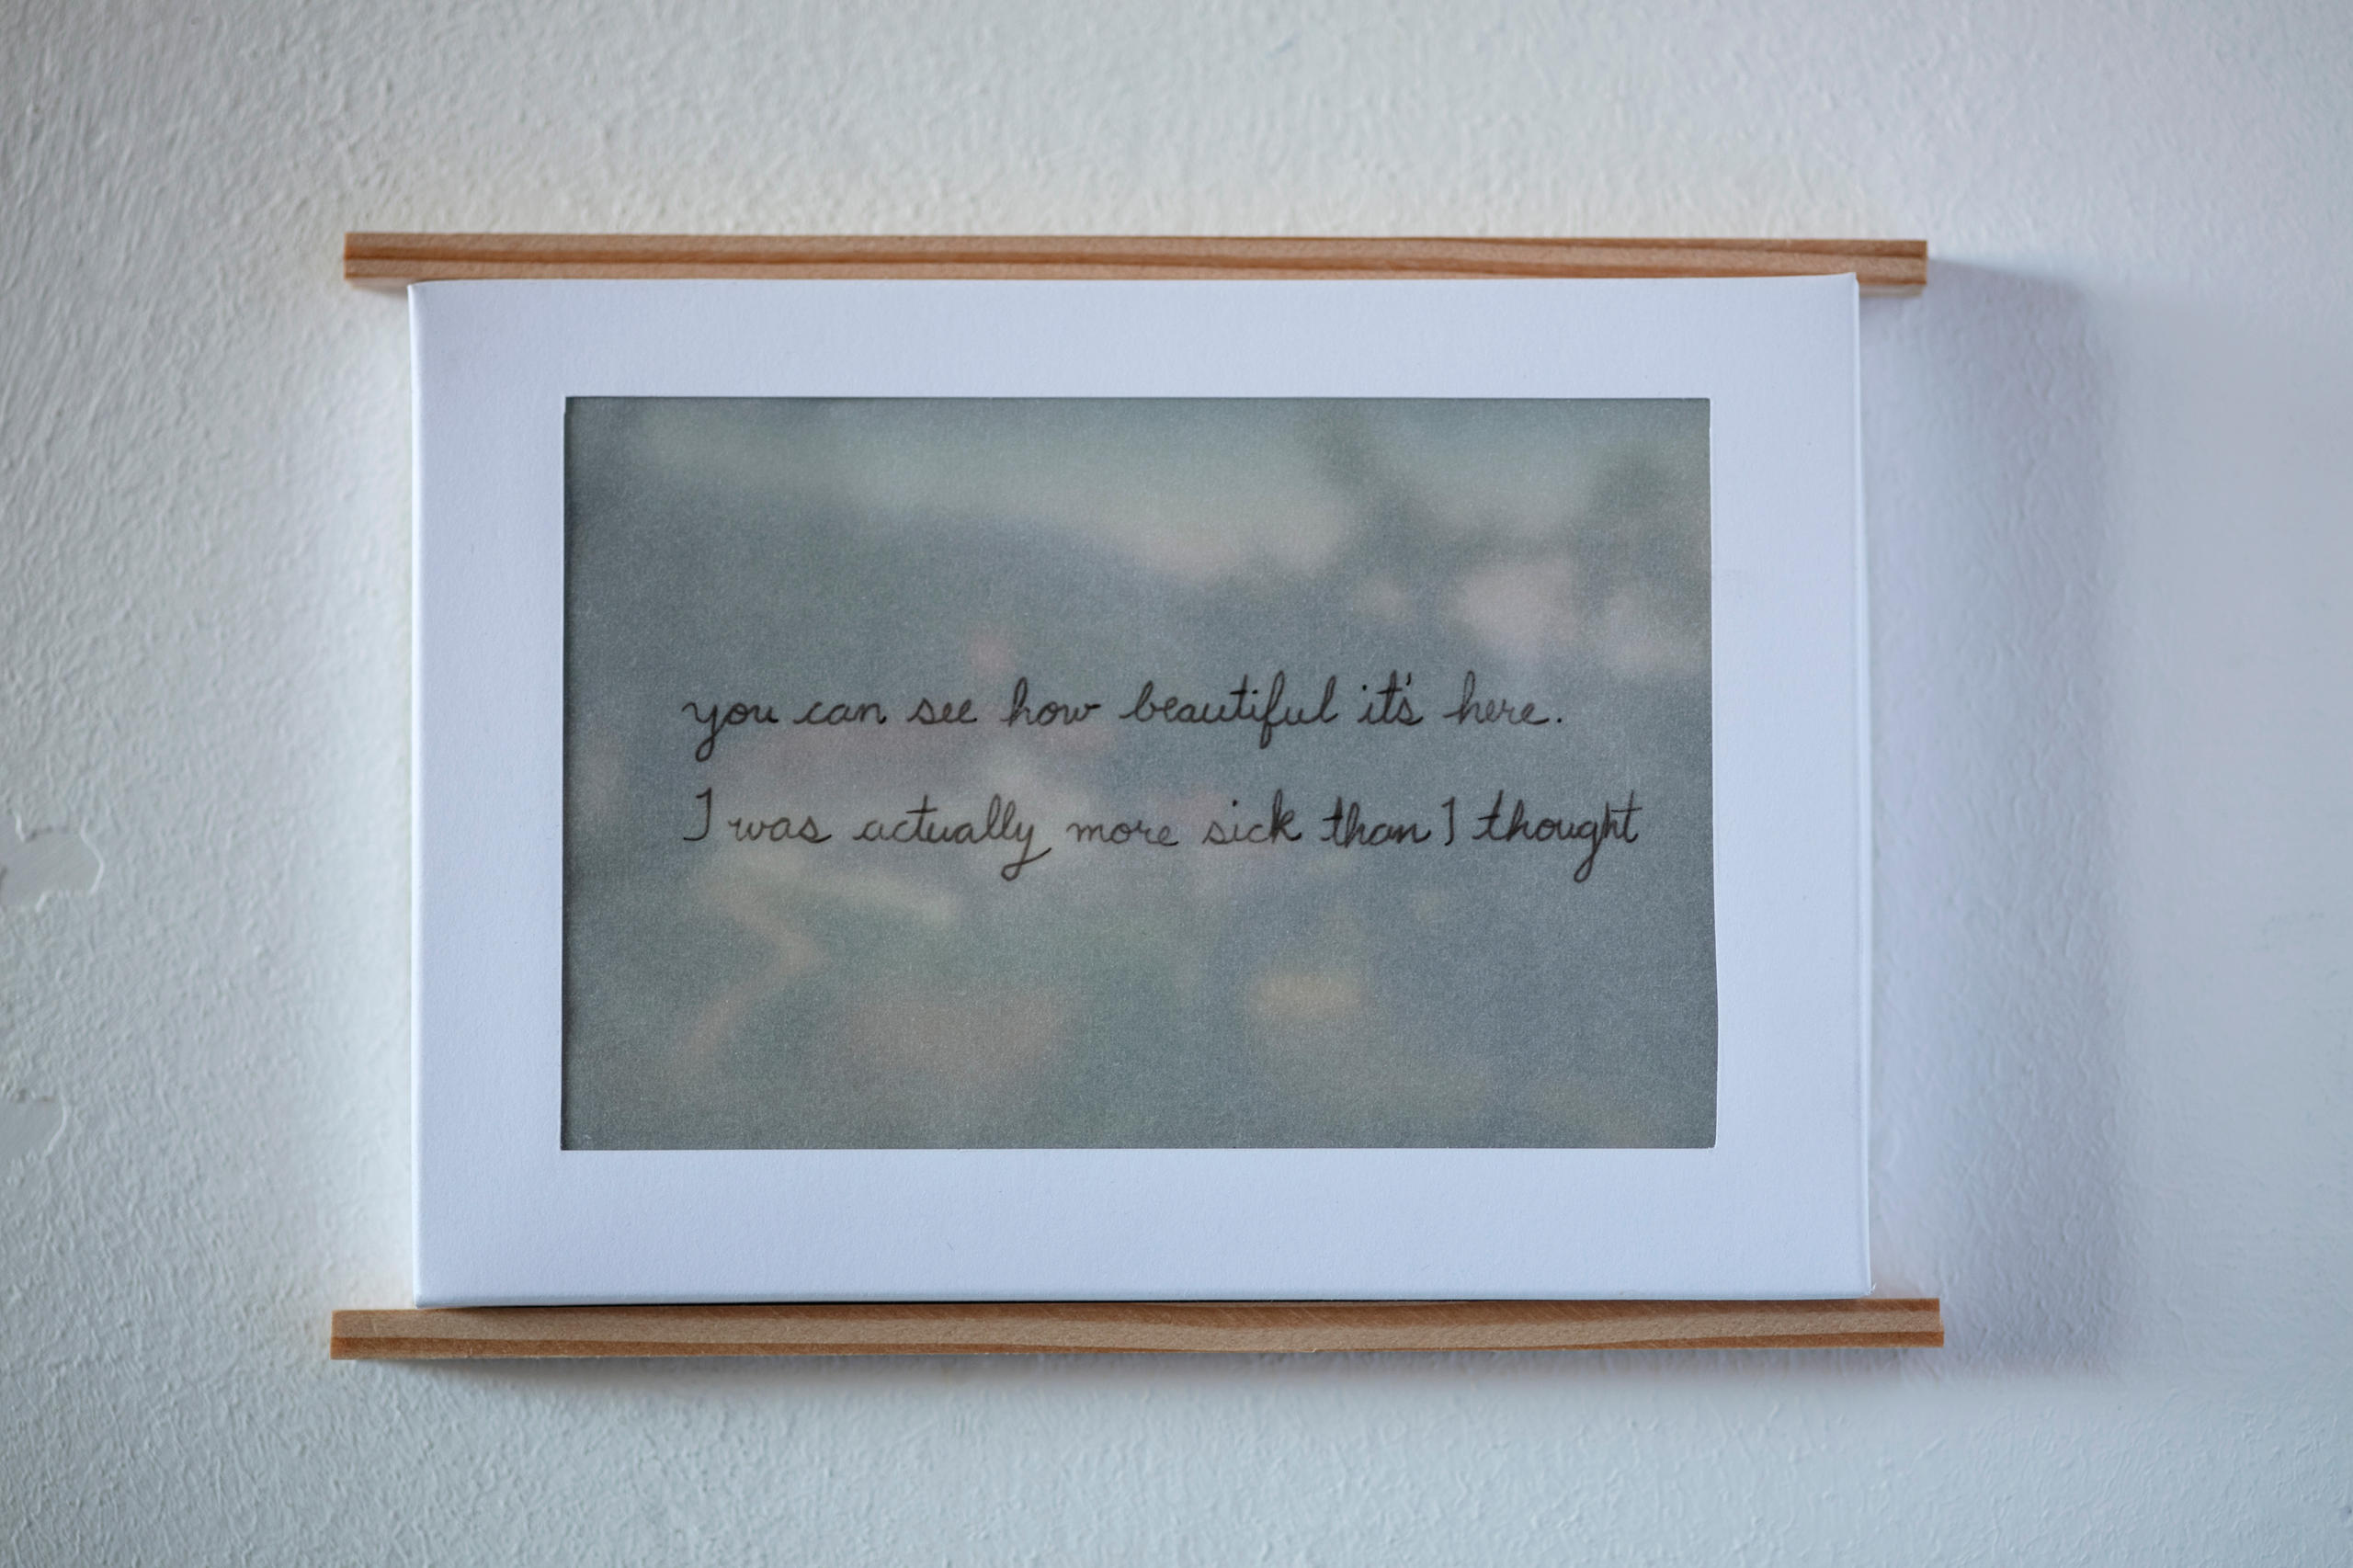 you can see how beautiful it's here.
I was actually more sick than I thought